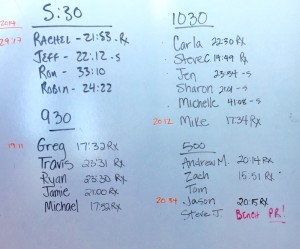 5:30
2014
29:17
RACHEL - 21:53 - Rx
JEFF - 22:12 - S
Ron - 33:10
Robin - 24:22
930
19:11
Greg 17:32 Rx
Travis 23:31 Rx
Ryan 23:30 Rx
Jamie 21:00 Rx
Michael 17:52 Rx
1030
Carla 22:30 Rx
Steve C. 19:49 Rx
Jen 23:54 - S
Sharon - S
Michelle 41:08 - S
20:12
Mike 17:34 Rx
500
Andrew M. 20:14 Rx
Zach 15:51 Rx
Tom
20:34
Jason 20:15 Rx
Steve J. BENCH PR!